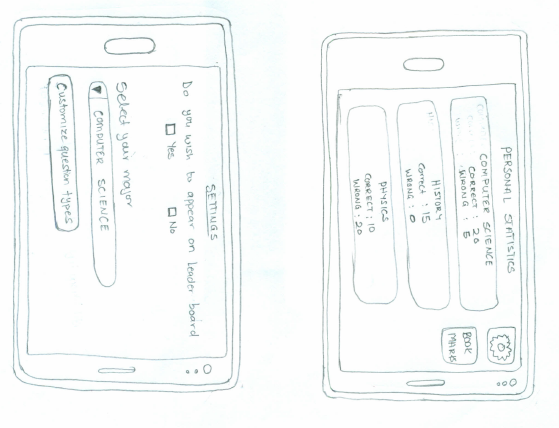 SETTINGS
Do you wish to appear on Leader board
Yes
No
Select your major
COMPUTER SCIENCE
Customize question types
PERSONAL STATISTICS
COMPUTER SCIENCE
CORRECT : 20
WRONG : 5
HISTORY
Correct : 15
WRONG : 0
PHYSICS
CORRECT : 10
WRONG : 20
BOOK
MARKS